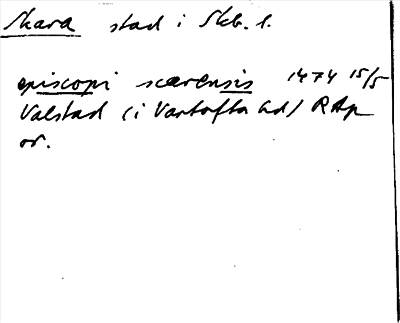 Skara stad i Skb. l.
episcopi scarensis 1474 15/5
Valstad (i Vartofta hd) RAp
or.